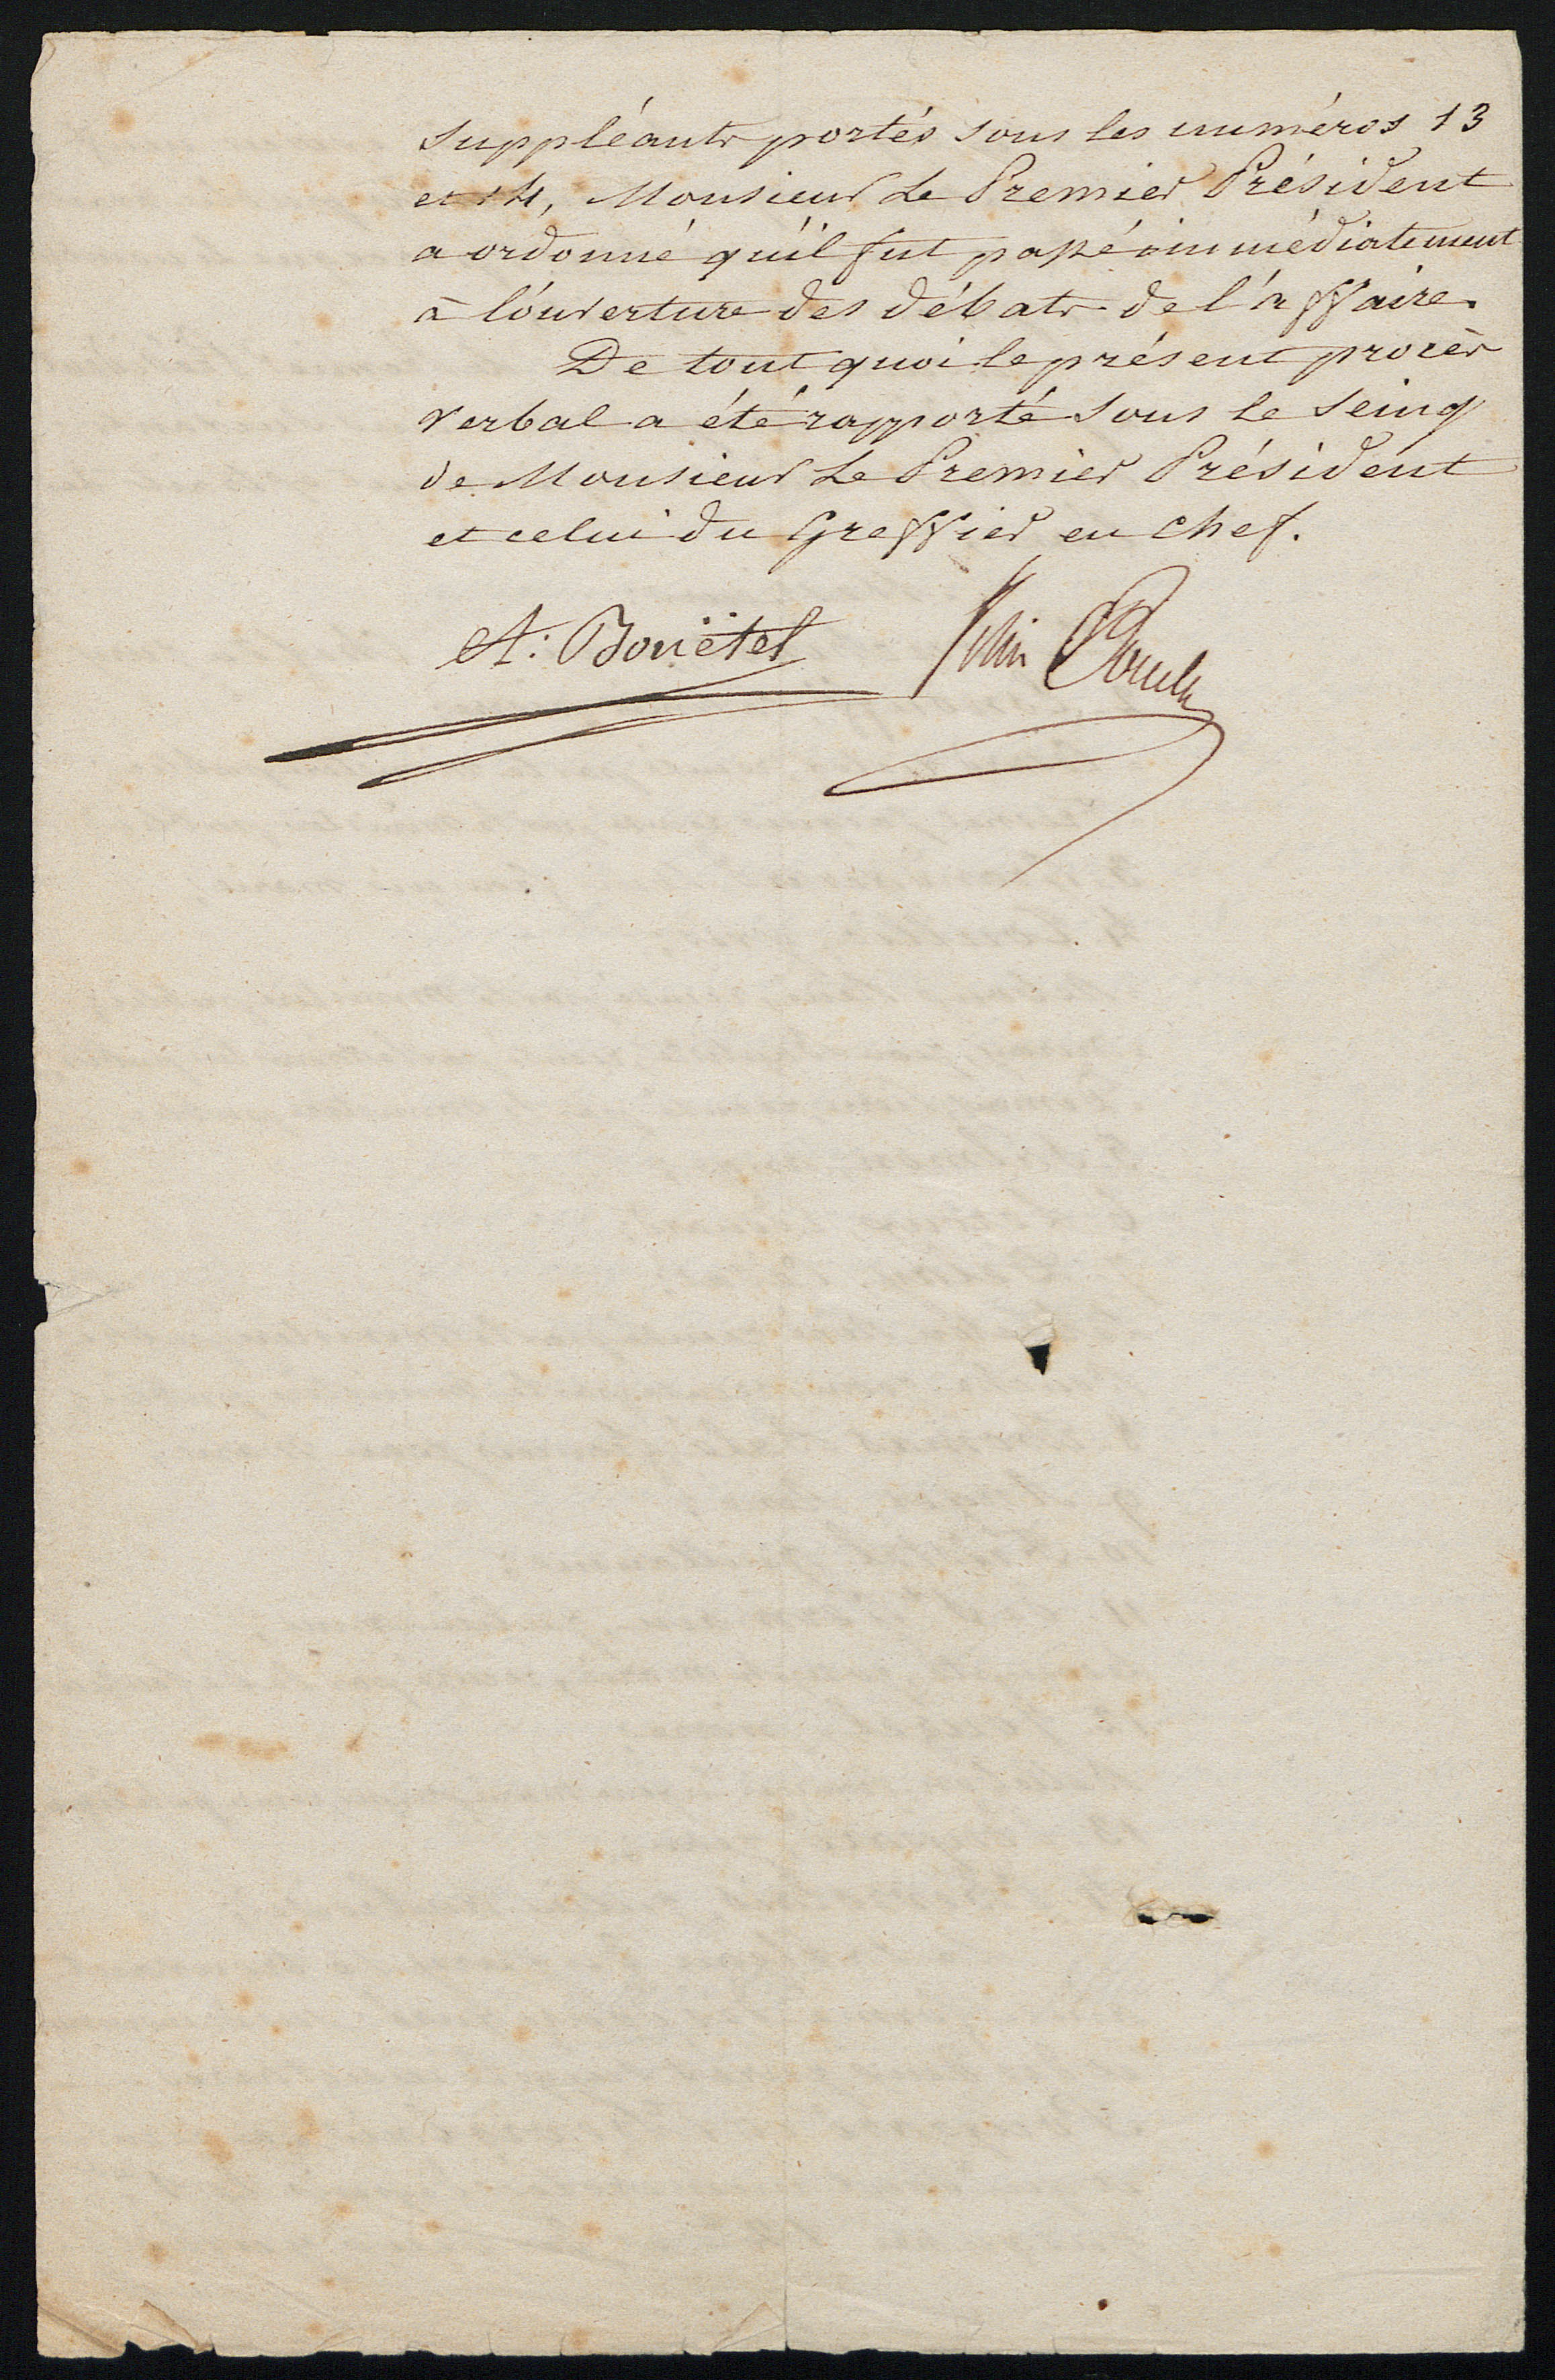 suppléants portés sous les numéros 13
et 14, Monsieur Le Premier Président
a ordonné qu'il fut passé immédiatement
à l'ouverture des débats de l'affaire.
De tout quoi le présent procès
verbal a été rapporté sous le seing
de Monsieur Le Premier Président
et celui du Greffier en chef.
A: Bouëtel